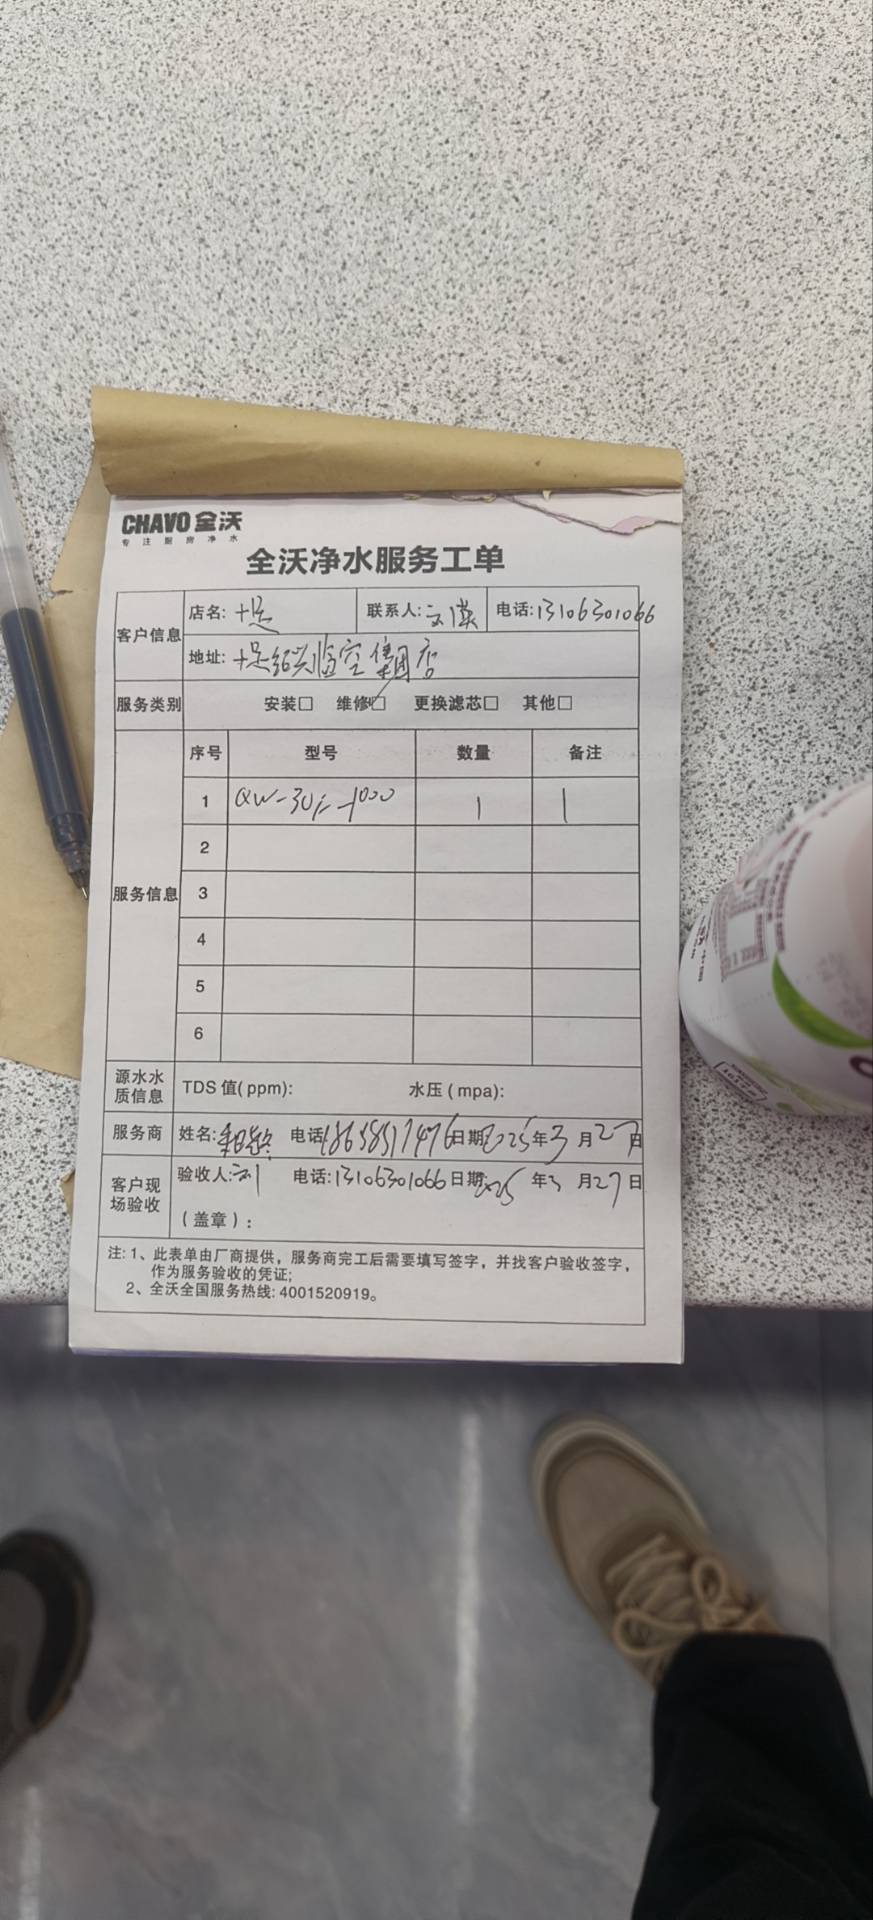 CHAVO 全沃
专注厨房净水
全沃净水服务工单
客户信息
店名: 十足 联系人: 电话: 13106301066
地址: 十足绍兴临空集团店
服务类别 安装□ 维修☑ 更换滤芯□ 其他□
服务信息
序号 型号 数量 备注
1 1
2
3
4
5
6
源水水质信息 TDS 值(ppm): 水压(mpa):
服务商 姓名: 电话 18658517476 日期 2025年3月27日
客户现场验收 验收人: 刘 电话: 13106301066 日期: 2025年3月27日
(盖章):
注: 1、此表单由厂商提供，服务商完工后需要填写签字，并找客户验收签字，
作为服务验收的凭证;
2、全沃全国服务热线: 4001520919。